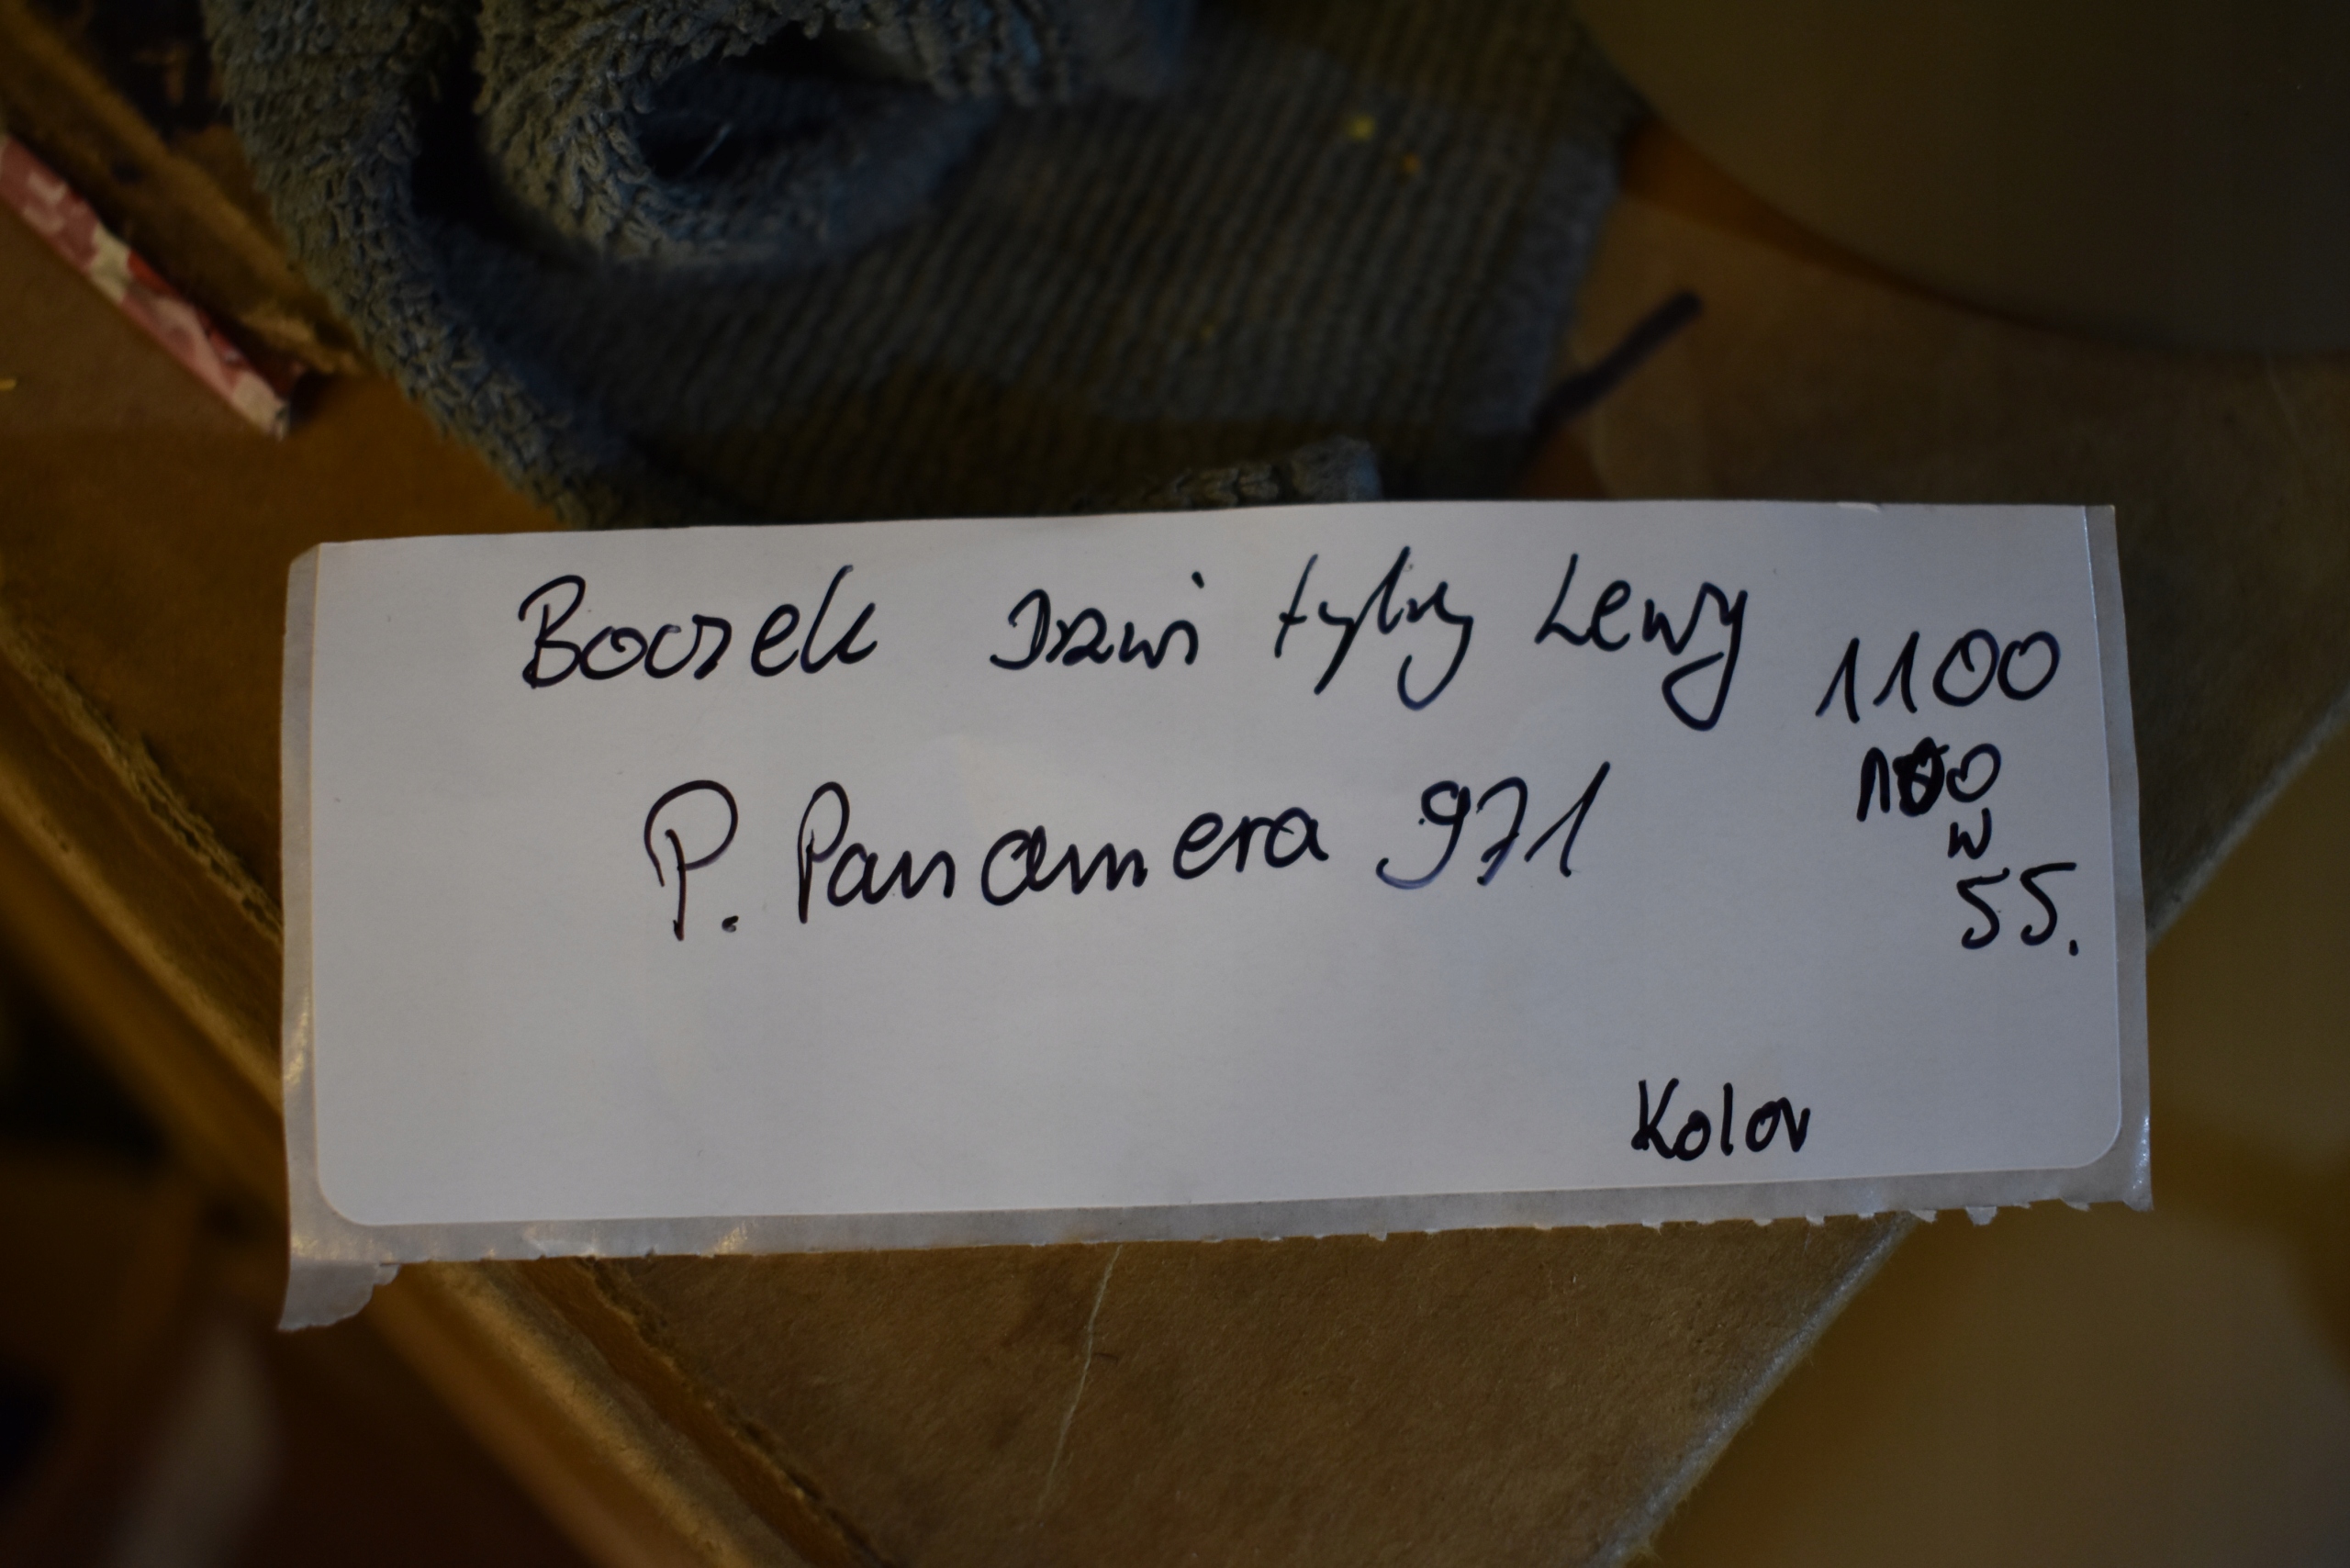 Boczek Drzwi tylny Lewy 1100
P. Panamera 971
100
w
55.
Kolor